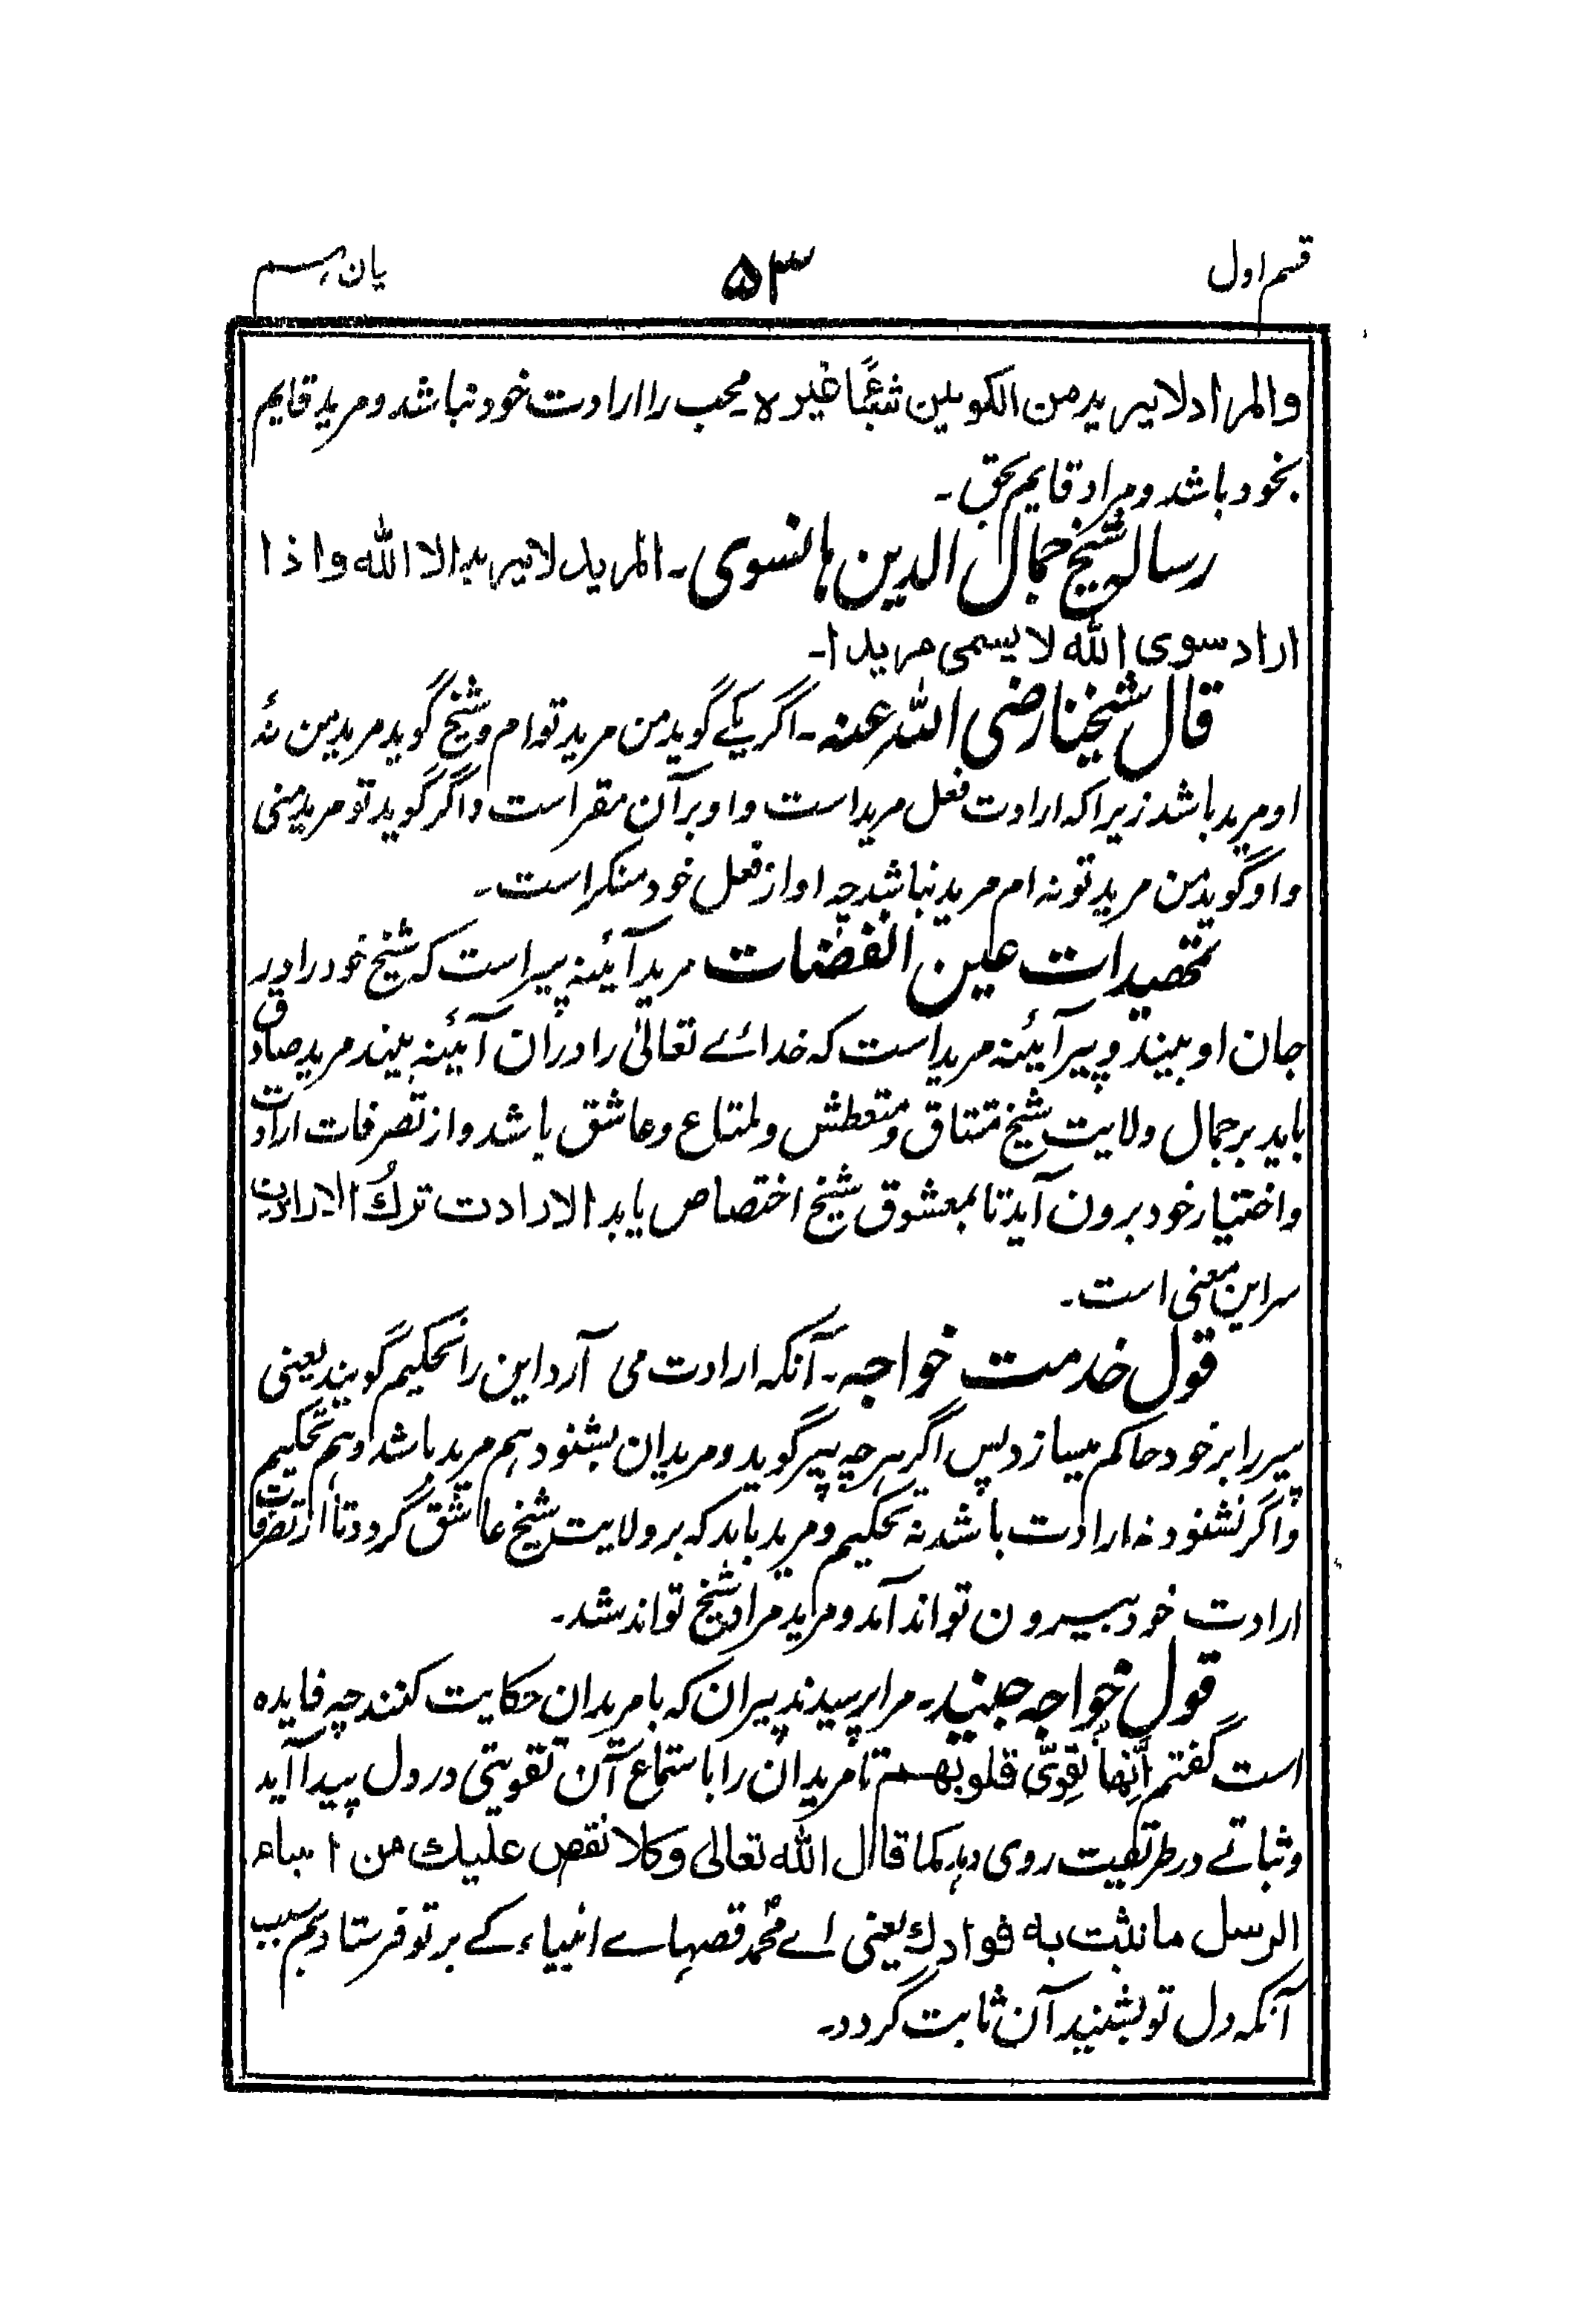 قسم اول
۵۳
والمراد لا یرید من الکونین شیئًا غیره۔ محب را ارادت خود نباشد و مرید قایم
بخود باشد و مراد قایم بحق۔
رسالہ شیخ جمال الدین ہانسوی۔ المرید لا یرید الا الله و اذا
اراد سوی الله لا یسمی مریدا۔
قال شیخنا رضی اللہ عنہ۔ اگر یکے گوید من مرید تو ام و شیخ گوید مرید من نۂ
او مرید باشد زیرا کہ ارادت فعل مرید است و او بر آن مقر است و اگر گوید تو مرید منی
و او گوید من مرید تو نہ ام مرید نباشد چہ او از فعل خود منکر است۔
تمھیدات عین القضات مرید آئینہ پیر است کہ شیخ خود را در
جان او بیند و پیر آئینہ مرید است کہ خدائے تعالیٰ را در ان آئینہ بیند مرید صادق
باید بر جمال ولایت شیخ مشتاق و متعطش و ملتاع و عاشق باشد و از تصرفات ارادت
و اختیار خود برون آید تا بمعشوق شیخ اختصاص یابد الارادت ترک الارادت
سر این معنی است۔
قول خدمت خواجہ۔ آنکہ ارادت می آرد این را تحکیم گویند یعنی
پیر را بر خود حاکم میسازد پس اگر ہرچہ پیر گوید و مریدان بشنود ہم مرید باشد و ہم تحکیم
و اگر نشنود نہ ارادت باشد نہ تحکیم و مرید باید کہ بر ولایت شیخ عاشق گردد تا از تصرفات
ارادت خود بیرون تواند آمد و مرید مراد شیخ تواند شد۔
قول خواجہ جنید۔ مرا پرسیدند پیران کہ با مریدان حکایت کنند چہ فایدہ
است گفتم اِنّھا تقوِّی قلوبھم تا مریدان را باستماع آن تقویتی در دل پیدا آید
و ثباتے در طریقیت روی دہد کما قال الله تعالی وکلا نقص علیك من انباء
الرسل ما نثبت به فوادك یعنی اے محمدؐ قصہاے انبیاء کے بر تو فرستادیم سبب
آنکہ دل تو بشنید آن ثابت گردد۔